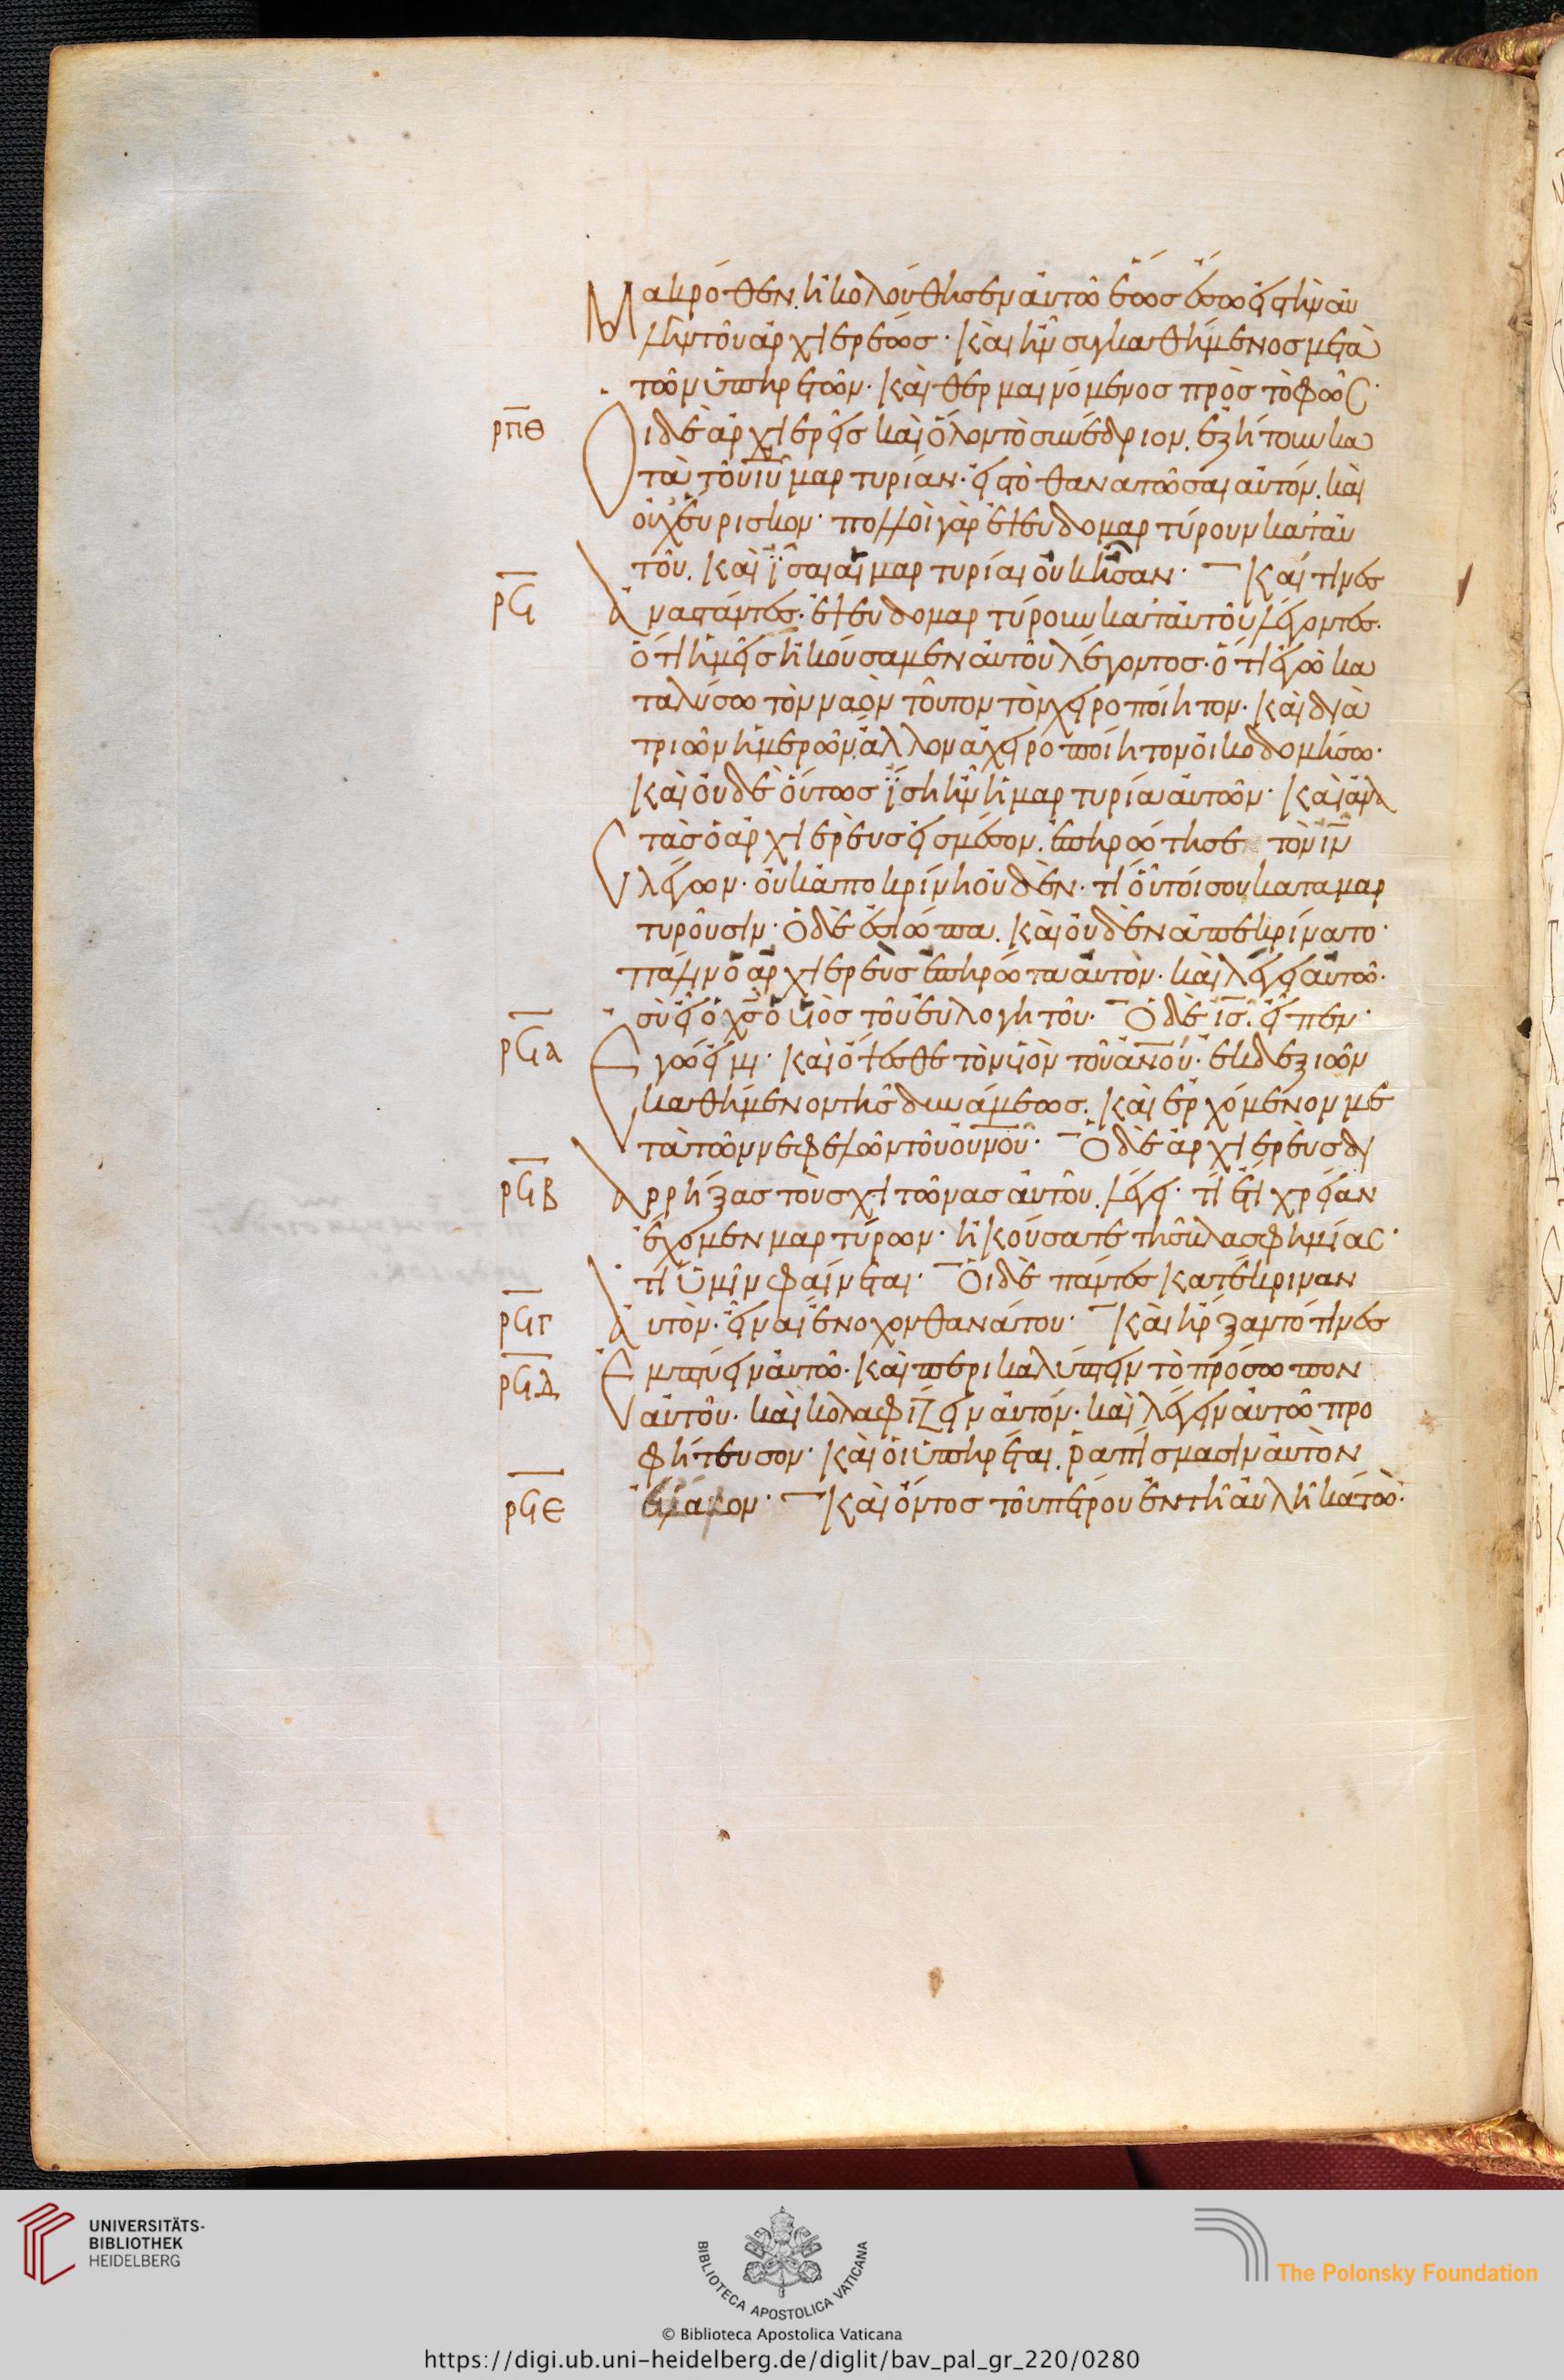 Μακρόθεν. ἠκολούθησεν αὐτῶ ἕως ἔσω εἰς τὴν αὐ
λὴν τοῦ ἀρχιερέως· καὶ ἦν συγκαθήμενος μετὰ
τῶν ὑπηρετῶν· καὶ θερμαινόμενος πρὸς τὸ φῶς·
ρπθ Οἱ δὲ ἀρχιερεῖς καὶ ὅλον τὸ συνέδριον. ἐζήτουν κα
τὰ τοῦ ιυ μαρτυρίαν· εἰς τὸ θανατῶσαι αὐτόν. καὶ
οὐχ εὕρισκον· πολλοὶ γὰρ ἐψευδομαρτύρουν κατ' αὐ
τοῦ. καὶ ἶσαι αἱ μαρτυρίαι οὐκ ἦσαν· Καί τινες
ρϟ ἀναστάντες· ἐψευδομαρτύρουν κατ' αὐτοῦ λέγοντες·
ὅτι ἡμεῖς ἠκούσαμεν αὐτοῦ λέγοντος· ὅτι ἐγὼ κα
ταλύσω τὸν ναὸν τοῦτον τὸν χειροποίητον· καὶ διὰ
τριῶν ἡμερῶν. ἄλλον ἀχειροποίητον οἰκοδομήσω·
καὶ οὐδὲ οὕτως ἴση ἦν ἡ μαρτυρία αὐτῶν· καὶ ἀνα
στὰς ὁ ἀρχιερεὺς εἰς μέσον. ἐπηρώτησε τὸν ιν
λέγων· οὐκ ἀποκρίνη οὐδέν· τί οὗτοί σου καταμαρ
τυροῦσιν· ὁ δὲ ἐσιώπα. καὶ οὐδὲν ἀπεκρίνατο·
πάλιν ὁ ἀρχιερεὺς ἐπηρώτα αὐτὸν· καὶ λέγει αὐτῶ·
σὺ εἶ ὁ χς ὁ υἱὸς τοῦ εὐλογητοῦ· Ὁ δὲ ις. εἶπεν·
ρϟα Ἐγώ εἰμι· καὶ ὄψεσθε τὸν υἱὸν τοῦ ανου· ἐκ δεξιῶν
καθήμενον τῆς δυνάμεως. καὶ ἐρχόμενον με
τὰ τῶν νεφελῶν τοῦ ουνου· Ὁ δὲ ἀρχιερεὺς δι
ρϟβ αρρήξας τοὺς χιτῶνας αὐτοῦ. λέγει· τί ἔτι χρείαν
ἔχομεν μαρτύρων· ἠκούσατε τῆς βλασφημίας·
τί ὑμῖν φαίνεται· Οἱ δὲ πάντες κατέκριναν
ρϟγ αὐτὸν· εἶναι ἔνοχον θανάτου· Καὶ ἤρξαντό τινες
ρϟδ ἐμπτύειν αὐτῶ· καὶ περικαλύπτειν τὸ πρόσωπον
αὐτοῦ· καὶ κολαφίζειν αὐτόν· καὶ λέγειν αὐτῶ προ
φήτευσον· καὶ οἱ ὑπηρέται. ῥαπίσμασιν αὐτὸν
ρϟε ἔβαλον· Καὶ ὄντος τοῦ πέτρου ἐν τῆ αὐλῆ κάτω·
UNIVERSITÄTS-
BIBLIOTHEK
HEIDELBERG
BIBLIOTECA APOSTOLICA VATICANA
The Polonsky Foundation
© Biblioteca Apostolica Vaticana
https://digi.ub.uni-heidelberg.de/diglit/bav_pal_gr_220/0280